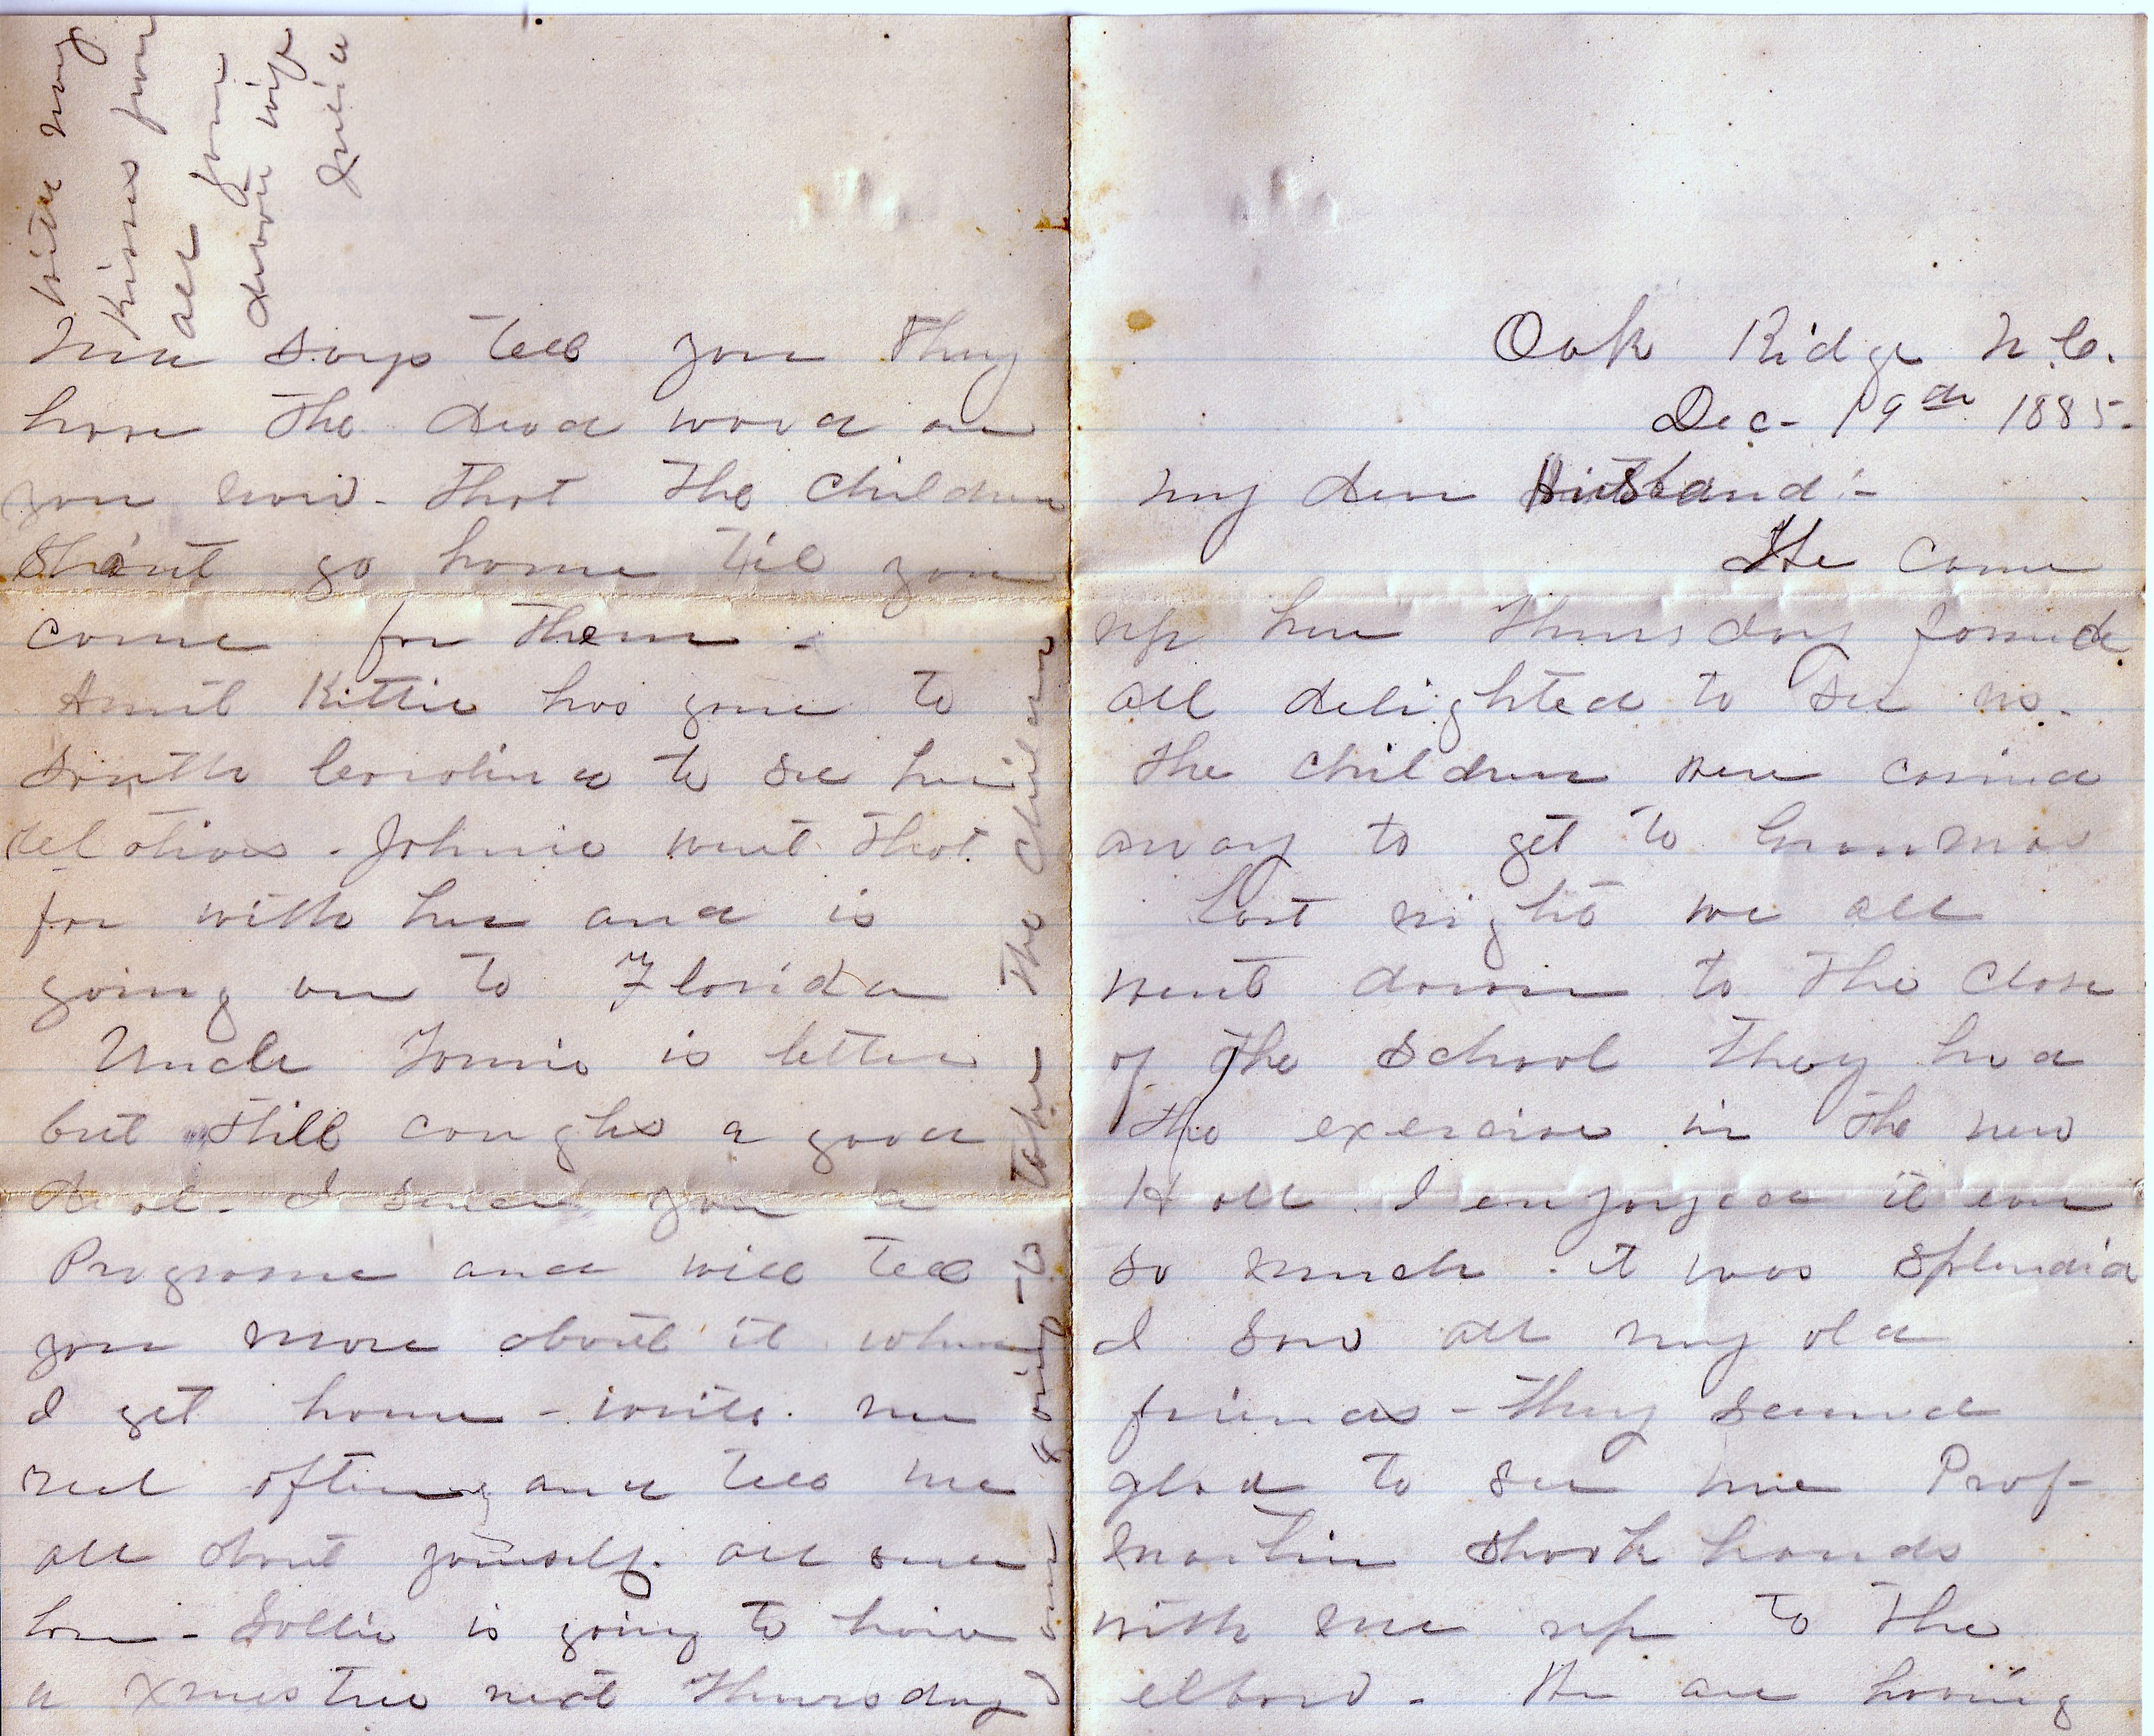 Oak Ridge N.C.
Dec- 19th 1885-
My dear Husband:-
We came
up here Thursday found
all delighted to see us.
The children were carried
away to get to Granmas
Last night we all
went down to the close
of the School they had
the exercise in the new
Hall. I enjoyed it ever
so much. it was splendid
I saw all my old
friends - They seemed
glad to see me Prof-
Martin shook hands
with me up to the
elbow - We are having
Ma says tell you they
have the dead wood on
you now - That the children
shant go home till you
come for them -
Aunt Kittie has gone to
South Carolina to see her
relatives - Johnie went that
far with her and is
going on to Florida
Uncle Tomie is better
but still coughs a good
deal - I send you a
Programe and will tell
you more about it when
I get home - write me
real often, and tell me
all about yourself. all send
love - Sollie is going to have
a Xmas tree next Thursday
I am going to
take the children
with many
kisses from
all your
devoted wife
Julia